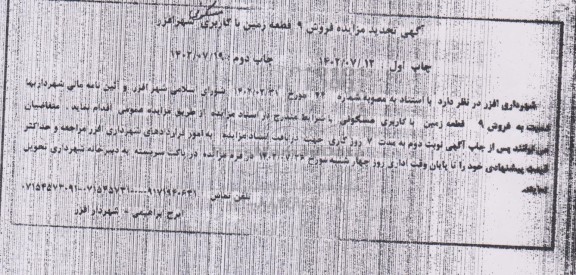 آگهی تجدید مزایده فروش ۹ قطعه زمین با کاربری مسکونی شهر افزر
چاپ اول ۱۴۰۲/۰۷/۱۲ چاپ دوم ۱۴۰۲/۰۷/۱۹
شهرداری افزر در نظر دارد با استناد به مصوبه شماره ۲۴ مورخ شورای اسلامی شهر افزر و آئین نامه مالی شهرداریها
نسبت به فروش ۹ قطعه زمین با کاربری مسکونی با شرایط مندرج در اسناد مزایده از طریق مزایده عمومی اقدام نماید. متقاضیان
می توانند پس از چاپ آگهی نوبت دوم به مدت ۷ روز کاری جهت دریافت اسناد مزایده به امور قراردادهای شهرداری افزر مراجعه و حداکثر
قیمت پیشنهادی خود را تا پایان وقت اداری روز چهارشنبه مورخ ۱۴۰۲/۰۷/۲۶ در فرم مزایده در پاکت سربسته به دبیرخانه شهرداری تحویل
نمایند.
تلفن تماس
ایرج براهیمی - شهردار افزر